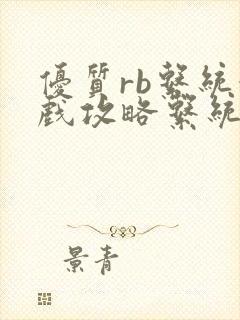 優質rb繫統
戲攻略繫統
景青